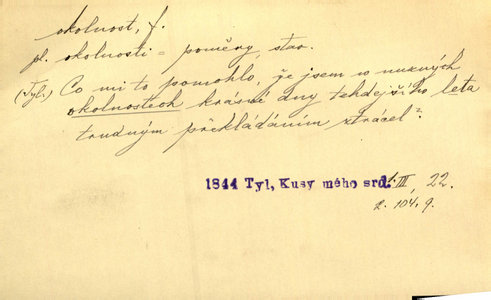 okolnost, f.
pl. okolnosti = poměry, stav.
(Tyl.) Co mi to pomohlo, že jsem v nuzných
okolnostech krásné dny tehdejšího leta
trudným překládáním ztrácel?
1844 Tyl, Kusy mého srd. III, 22.
2. 104, 9.